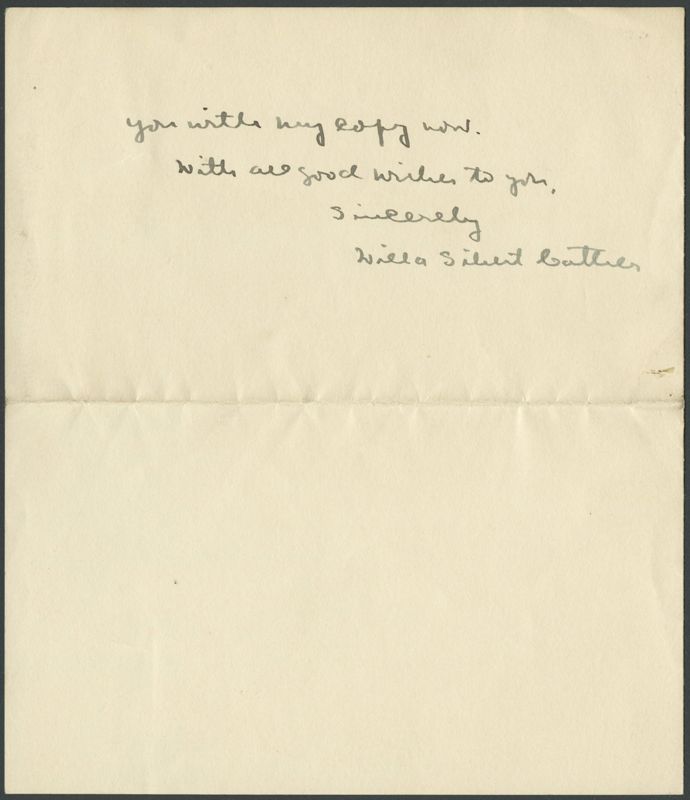 you with my copy now.
With all good wishes to you,
Sincerely
Willa Sibert Cather